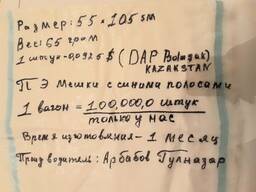 Размер: 55 × 105 sm
Вес: 65 грам
1 штук - 0,0925 $ (DAP Bolagak)
KAZAKSTAN
П Э Мешки с синима полосами
1 вагон = 100,000,0 штук
только у нас
Время изготовяная - 1 месяц
Призводитель: Арбабов Гулназар